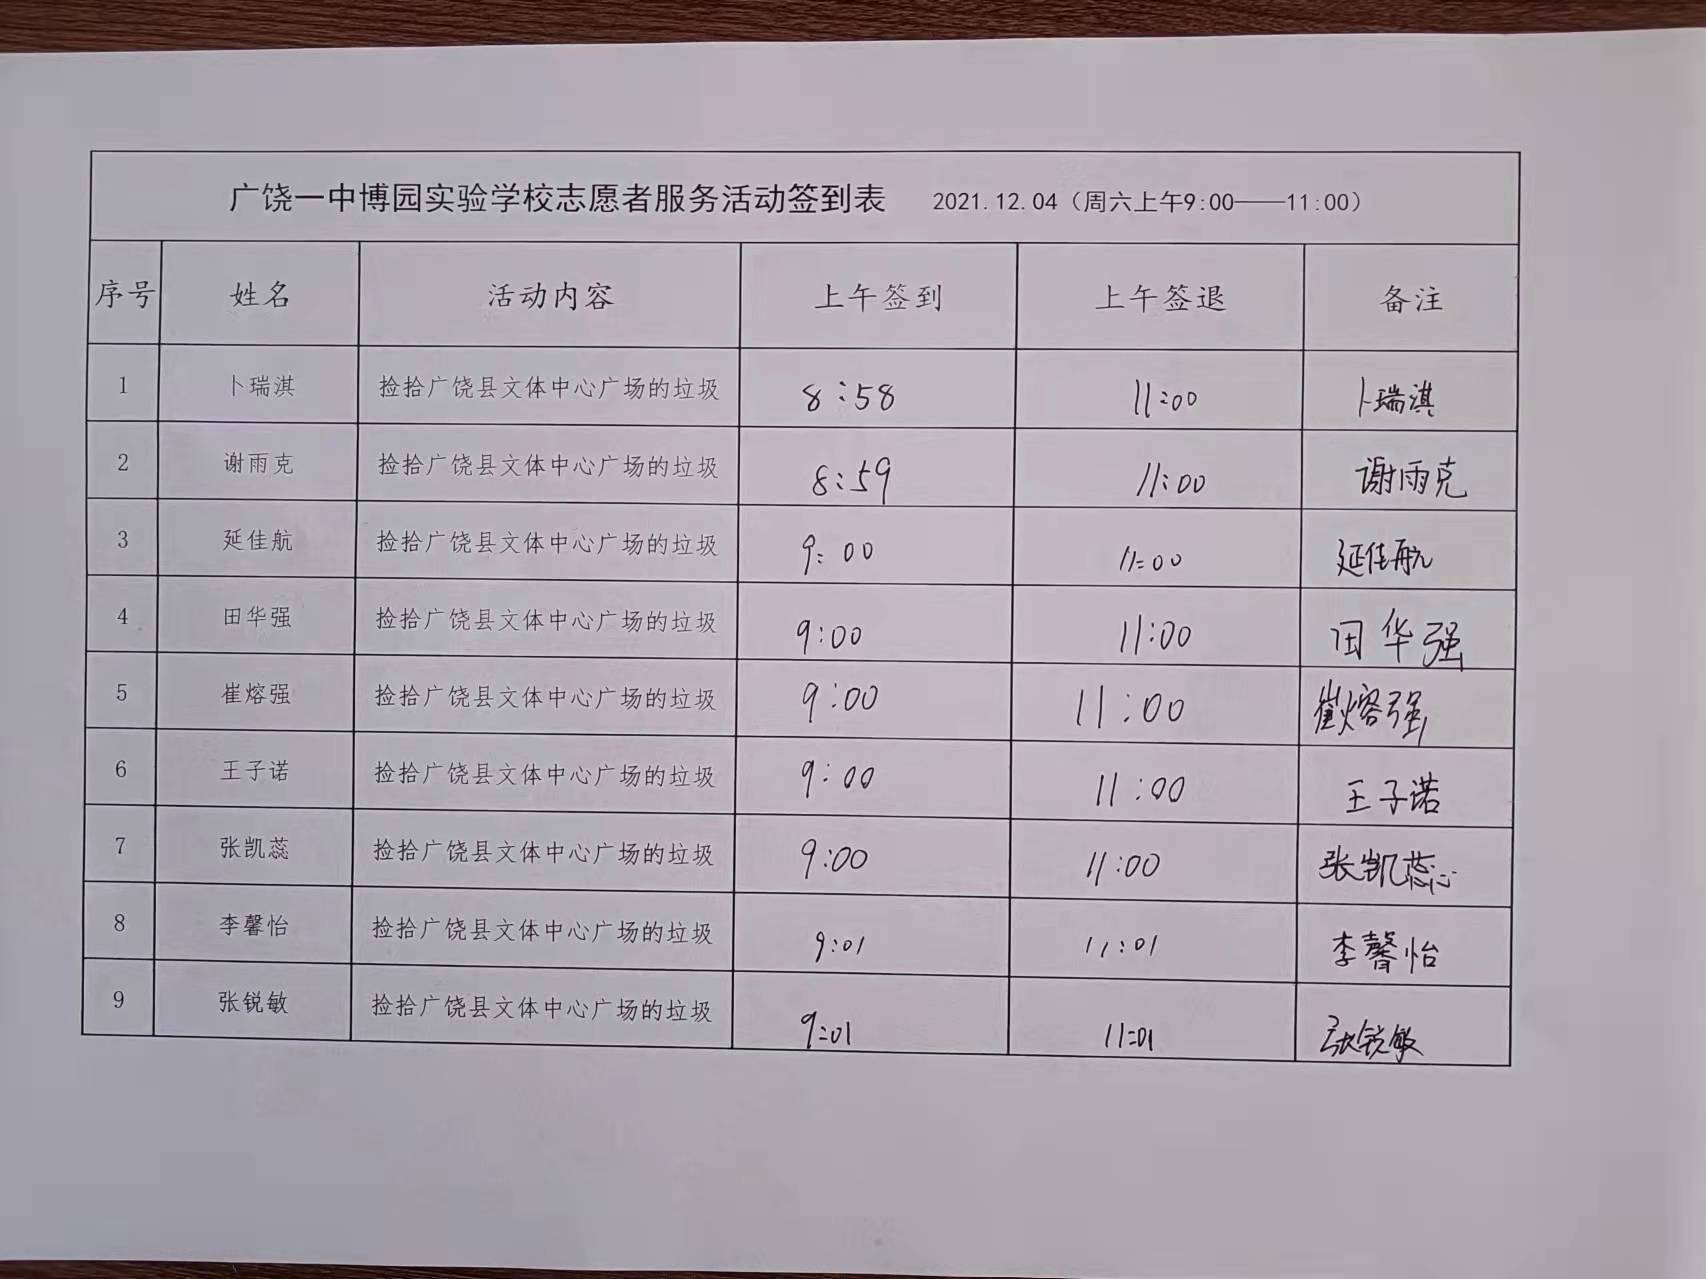 广饶一中博园实验学校志愿者服务活动签到表 2021.12.04（周六上午9:00——11:00）
序号 姓名 活动内容 上午签到 上午签退 备注
1 卜瑞淇 捡拾广饶县文体中心广场的垃圾 8:58 11:00 卜瑞淇
2 谢雨克 捡拾广饶县文体中心广场的垃圾 8:59 11:00 谢雨克
3 延佳航 捡拾广饶县文体中心广场的垃圾 9:00 11:00 延佳航
4 田华强 捡拾广饶县文体中心广场的垃圾 9:00 11:00 田华强
5 崔熔强 捡拾广饶县文体中心广场的垃圾 9:00 11:00 崔熔强
6 王子诺 捡拾广饶县文体中心广场的垃圾 9:00 11:00 王子诺
7 张凯蕊 捡拾广饶县文体中心广场的垃圾 9:00 11:00 张凯蕊
8 李馨怡 捡拾广饶县文体中心广场的垃圾 9:01 11:01 李馨怡
9 张锐敏 捡拾广饶县文体中心广场的垃圾 9:01 11:01 张锐敏